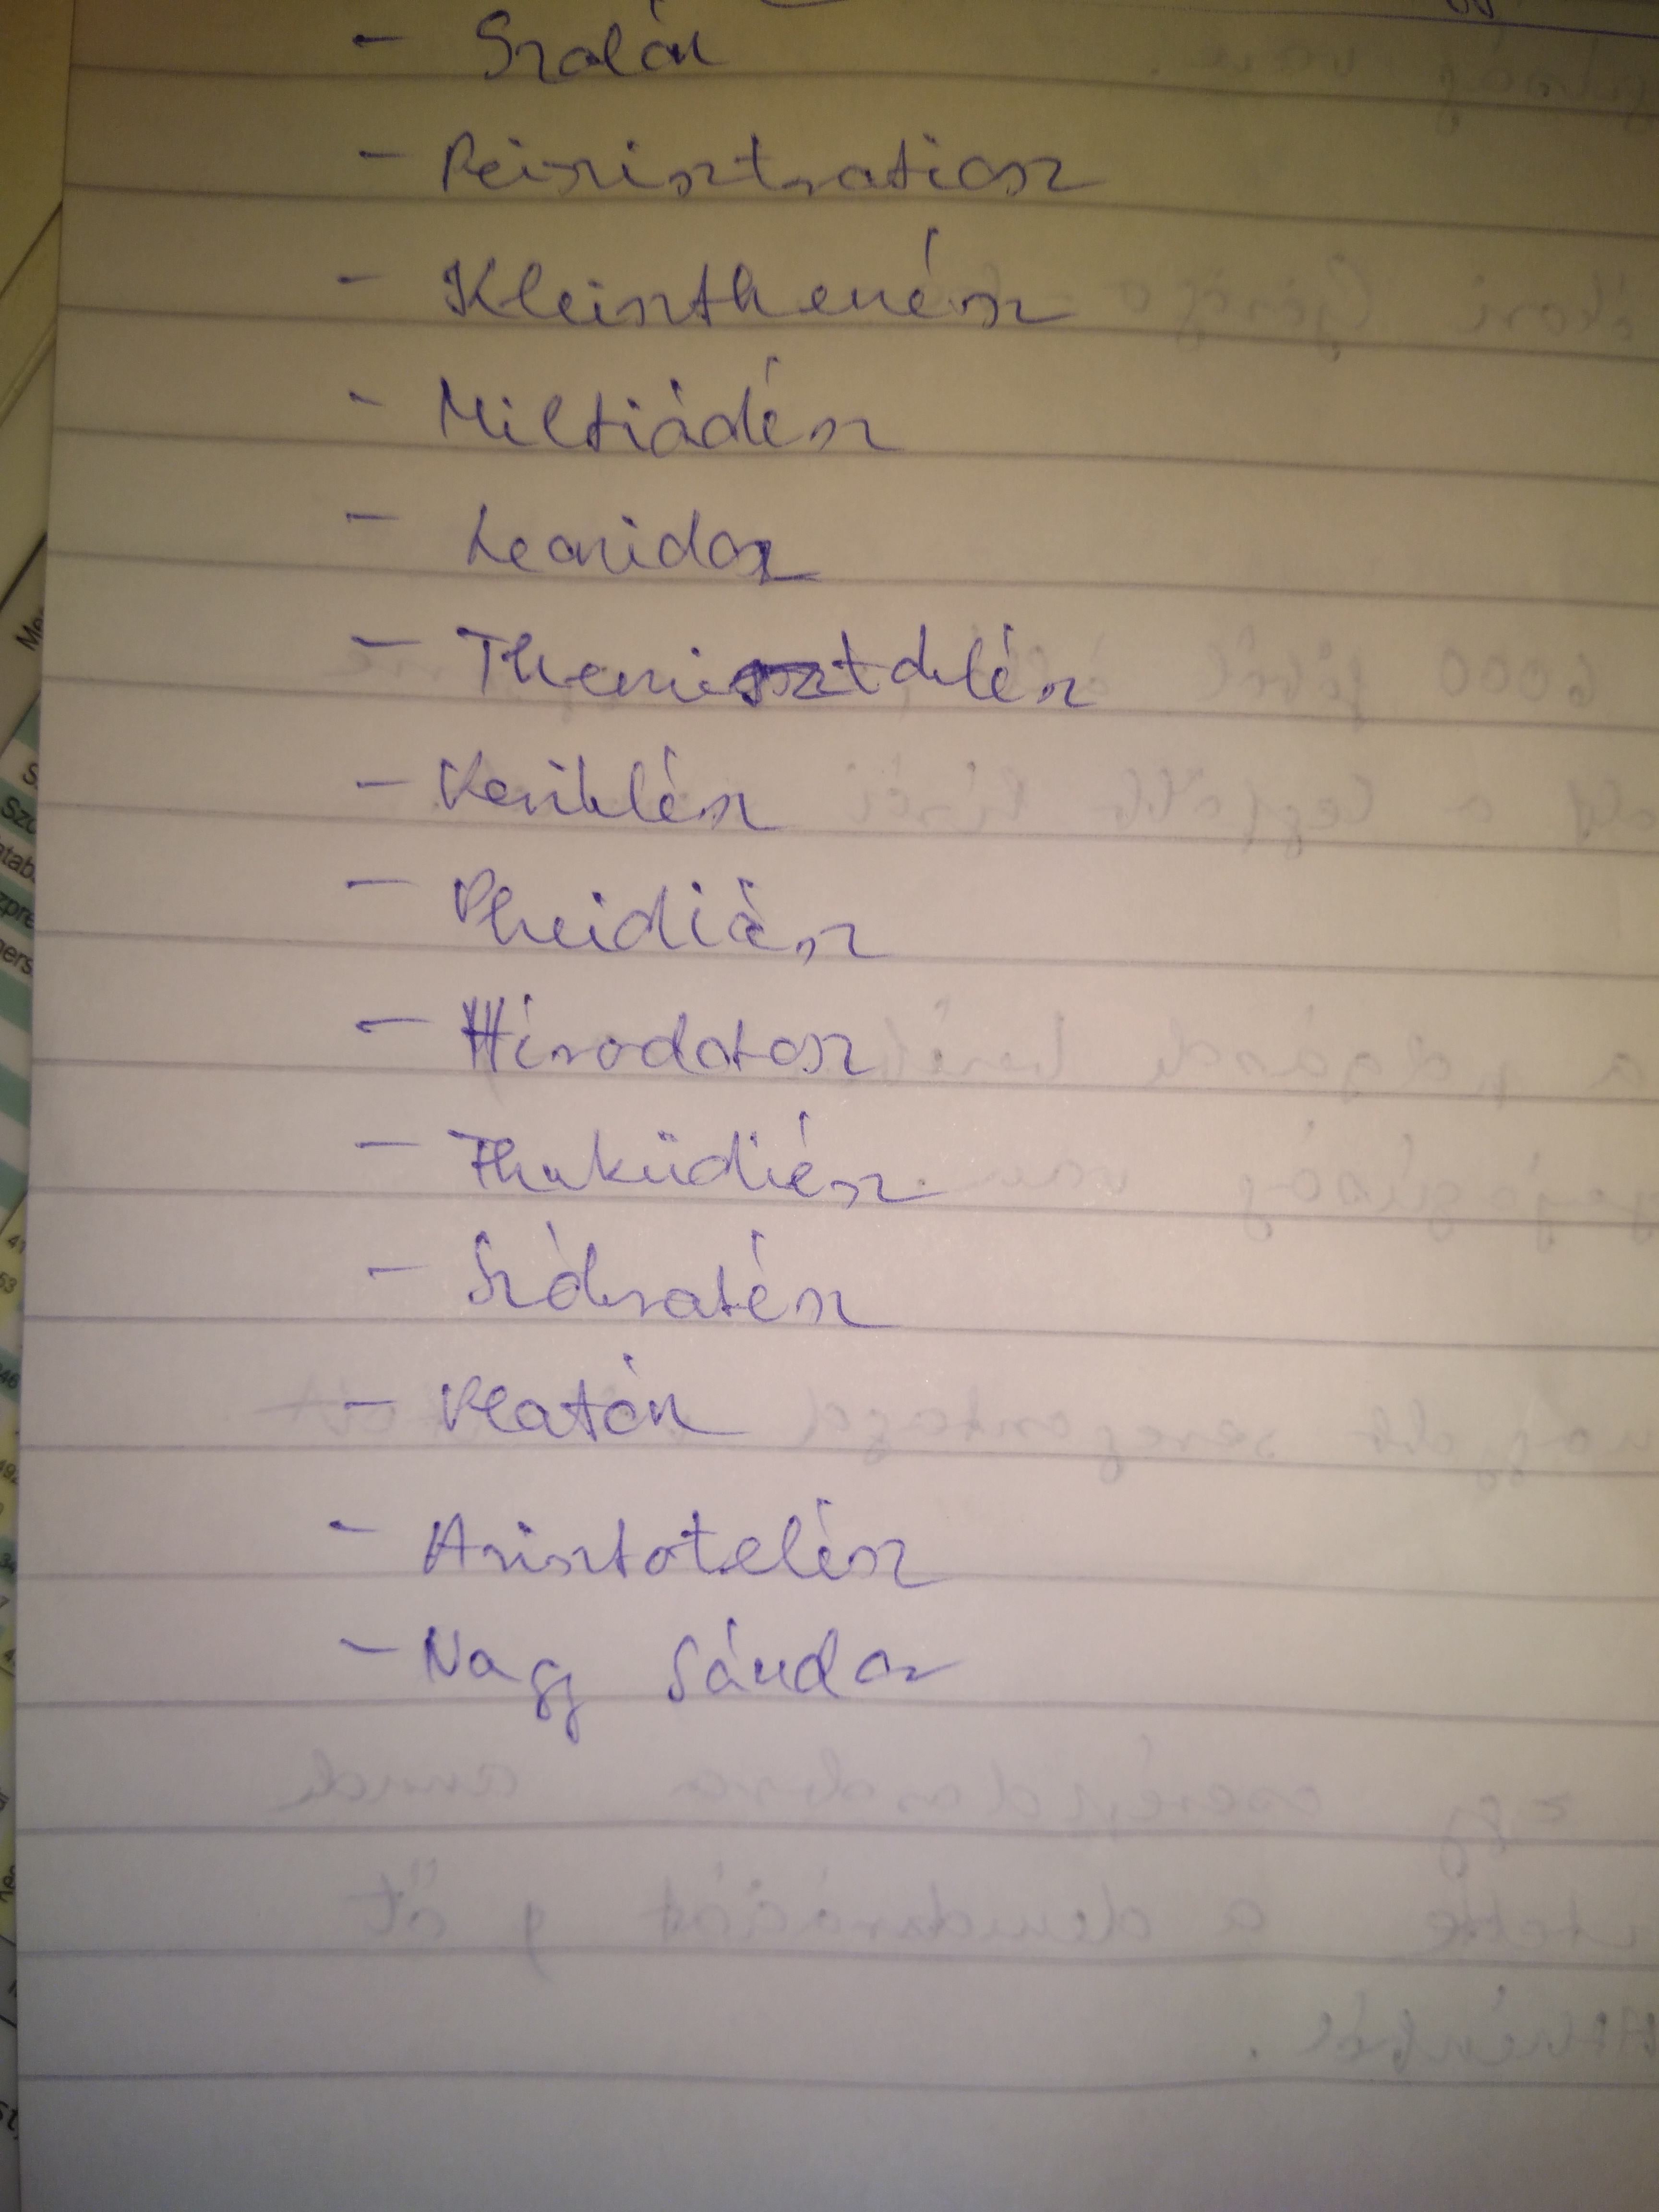 - Szolón
- Peiszisztratiosz
- Kleiszthenész
- Miltiádész
- Leonidasz
- Themisztoklész
- Periklész
- Pheidiász
- Hérodotosz
- Thuküdiész
- Szókratész
- Platón
- Arisztotelész
- Nagy Sándor